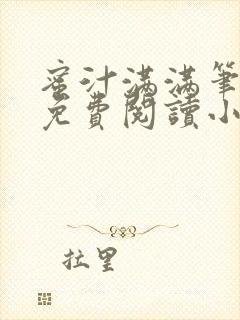 蜜汁滿滿筆
免費閱讀小
拉里